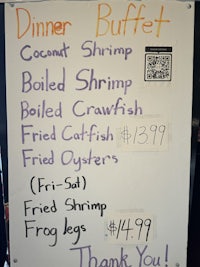 Dinner Buffet
Coconut Shrimp
Boiled Shrimp
Boiled Crawfish
Fried Catfish $13.99
Fried Oysters
(Fri-Sat)
Fried Shrimp
Frog legs $14.99
Thank You!